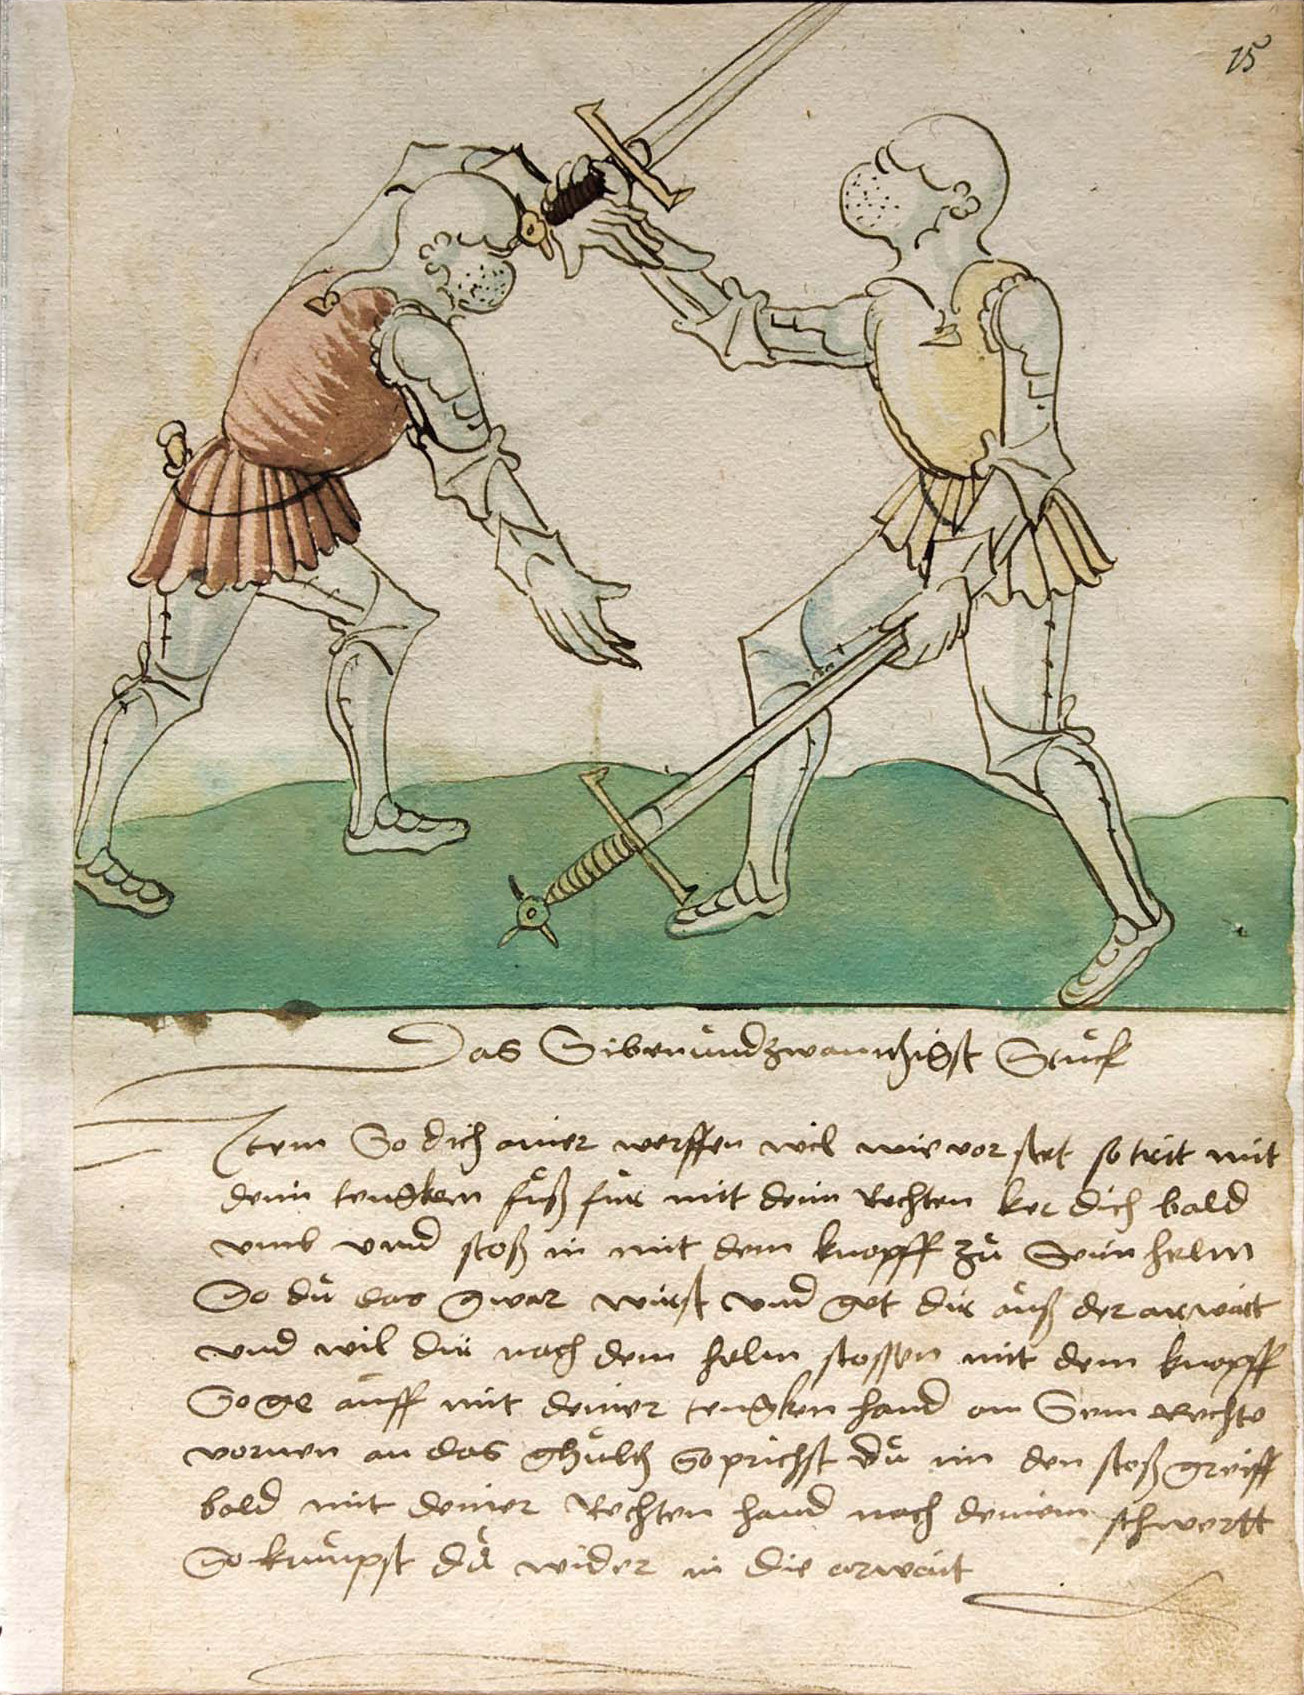 15
Das Sibenundzwanntzigist Stuck
Item So dich ainer werffen wil wie vor stet so trit mit
deim tengken fuß fur mitt deim Rechten ker dich bald
vmb vnnd stoß in mit dem knopff zu Seim helm
So du das gwar wurst vnnd get dir auß der arwait
vnnd wil dir nach dem helm stossen mit dem knopff
So ge auff mit deiner tengken hand an Sein Rechte
vornen an das ghultz So prichst du im den stoß greiff
bald mit deiner Rechten hand nach deinem schwertt
So kumpst du wider in die arwait